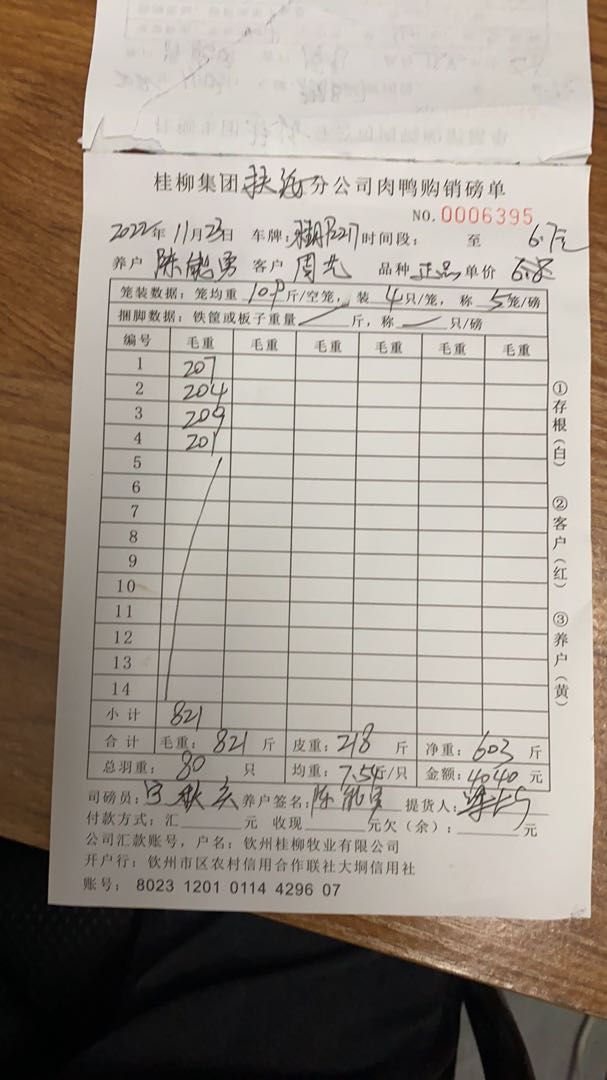 桂柳集团 分公司肉鸭购销磅单
NO.0006395
2022年 11月23日 车牌: 2217 时间段: 至 6.7元
养户 陈能勇 客户 周 品种 正品 单价 6.8
笼装数据: 笼均重 10.9 斤/空笼, 装 4 只/笼, 称 5 笼/磅
捆脚数据: 铁筐或板子重量 斤, 称 只/磅
编号 毛重 毛重 毛重 毛重 毛重 毛重
1 207
2 204
3 209
4 201
5
6
7
8
9
10
11
12
13
14
小计 821
合计 毛重: 821 斤 皮重: 218 斤 净重: 603 斤
总羽重: 80 只 均重: 7.54斤/只 金额: 4040 元
司磅员: 养户签名: 陈能勇 提货人:
付款方式: 汇 元 收现 元欠(余): 元
公司汇款账号, 户名: 钦州桂柳牧业有限公司
开户行: 钦州市区农村信用合作联社大垌信用社
账号: 8023 1201 0114 4296 07
①存根(白)
②客户(红)
③养户(黄)